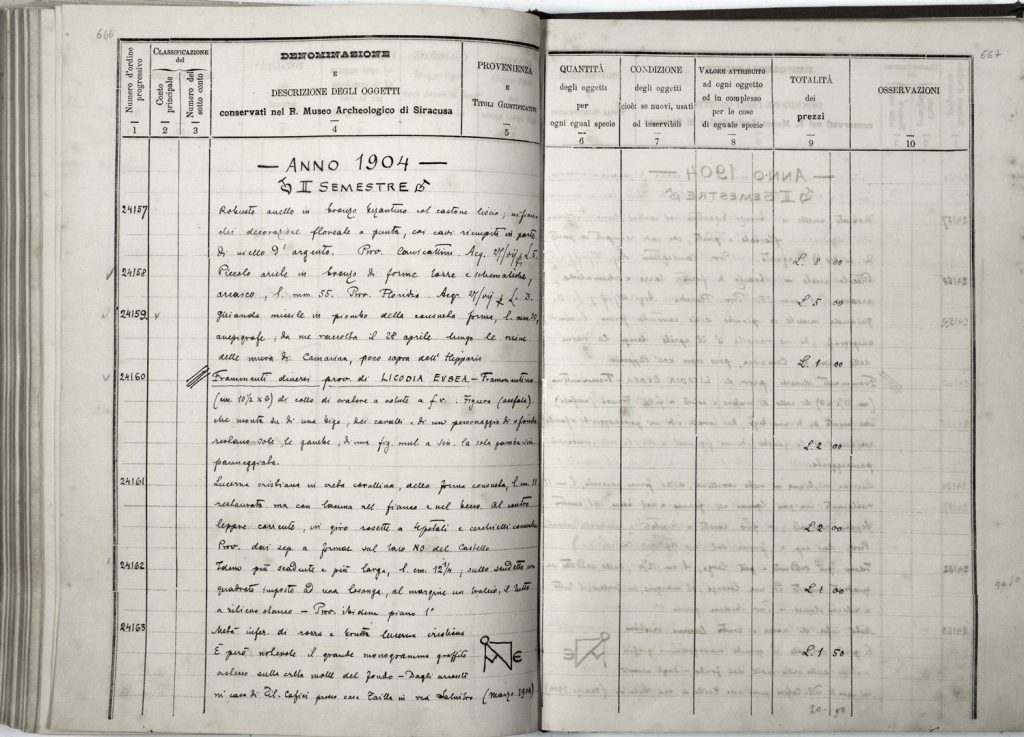 666
Numero d'ordine progressivo
CLASSIFICAZIONE del
Conto principale
Numero del sotto conto
DENOMINAZIONE
E
DESCRIZIONE DEGLI OGGETTI
conservati nel R. Museo Archeologico di Siracusa
PROVENIENZA
E
TITOLI GIUSTIFICATIVI
1 2 3 4 5
— ANNO 1904 —
II SEMESTRE
24157 Robusto anello in bronzo bizantino col castone liscio;
dei decorazione floreale a punta, coi cavi riempiti in parte
di niello d'argento. Prov. Canicattini. Acq. 27/vij £. 5.
24158 Piccolo ariete in bronzo di forme tozze e schematiche,
arcaico, l. mm. 55. Prov. Floridia Acq. 27/vij £. 3.
24159 Ghianda missile in piombo della consueta forma, l. mm. 30,
anepigrafe, da me raccolta il 28 aprile lungo le rovine
delle mura di Camarina, poco sopra dell'Hipparis
24160 Frammenti diversi prov. di LICODIA EVBEA. — Frammentino
(cm. 10½ x 6) di collo di cratere a volute a f. r. Figura (acefala)
che monta su di una biga, dei cavalli e di un personaggio di sfondo
restano sole le gambe; di una fig. mul. a sin. la sola gamba sin.
panneggiata.
24161 Lucerna cristiana in creta corallina, della forma consueta, l. cm. 11
restaurata ma con lacuna nel fianco e nel becco. Al centro
leppre corrente, in giro rosette a 4 petali e cerchielli
Prov. dai sep. a formae sul lato NO del Castello
24162 Idem più scadente e più larga, l. cm. 12¼; sullo scudetto un
quadrato imposto ad una losanga, al margine un tralcio, il tutto
a rilievo stanco — Prov. ibidem piano 1°
24163 Metà infer. di rozza e brutta lucerna cristiana
È però notevole il grande monogramma graffito
sulla creta molle del fondo — Dagli
in casa di Cafici presso casa in via (Marzo 1904)
667
QUANTITÀ
degli oggetti
per
ogni egual specie
CONDIZIONE
degli oggetti
cioè: se nuovi, usati
od inservibili
VALORE ATTRIBUITO
ad ogni oggetto
ed in complesso
per le cose
di eguale specie
TOTALITÀ
dei
prezzi
OSSERVAZIONI
6 7 8 9 10
L. 8 00
L. 5 00
L. 1 00
L. 2 00
L. 2 00
L. 1 00
L. 1 50
20 50